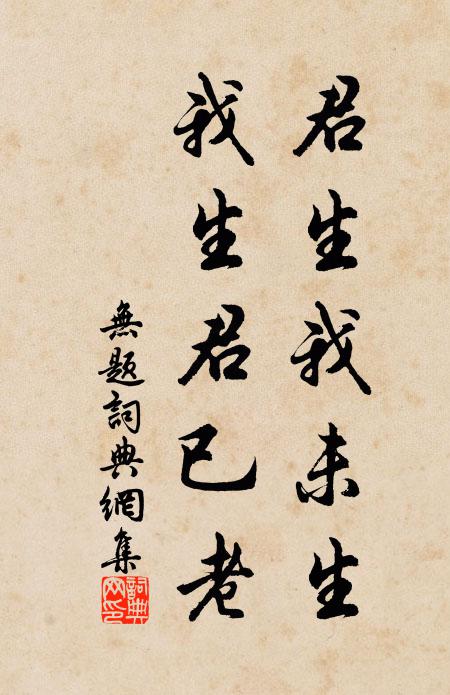 君生我未生
我生君已老
無題詞典網集
詞典
网印